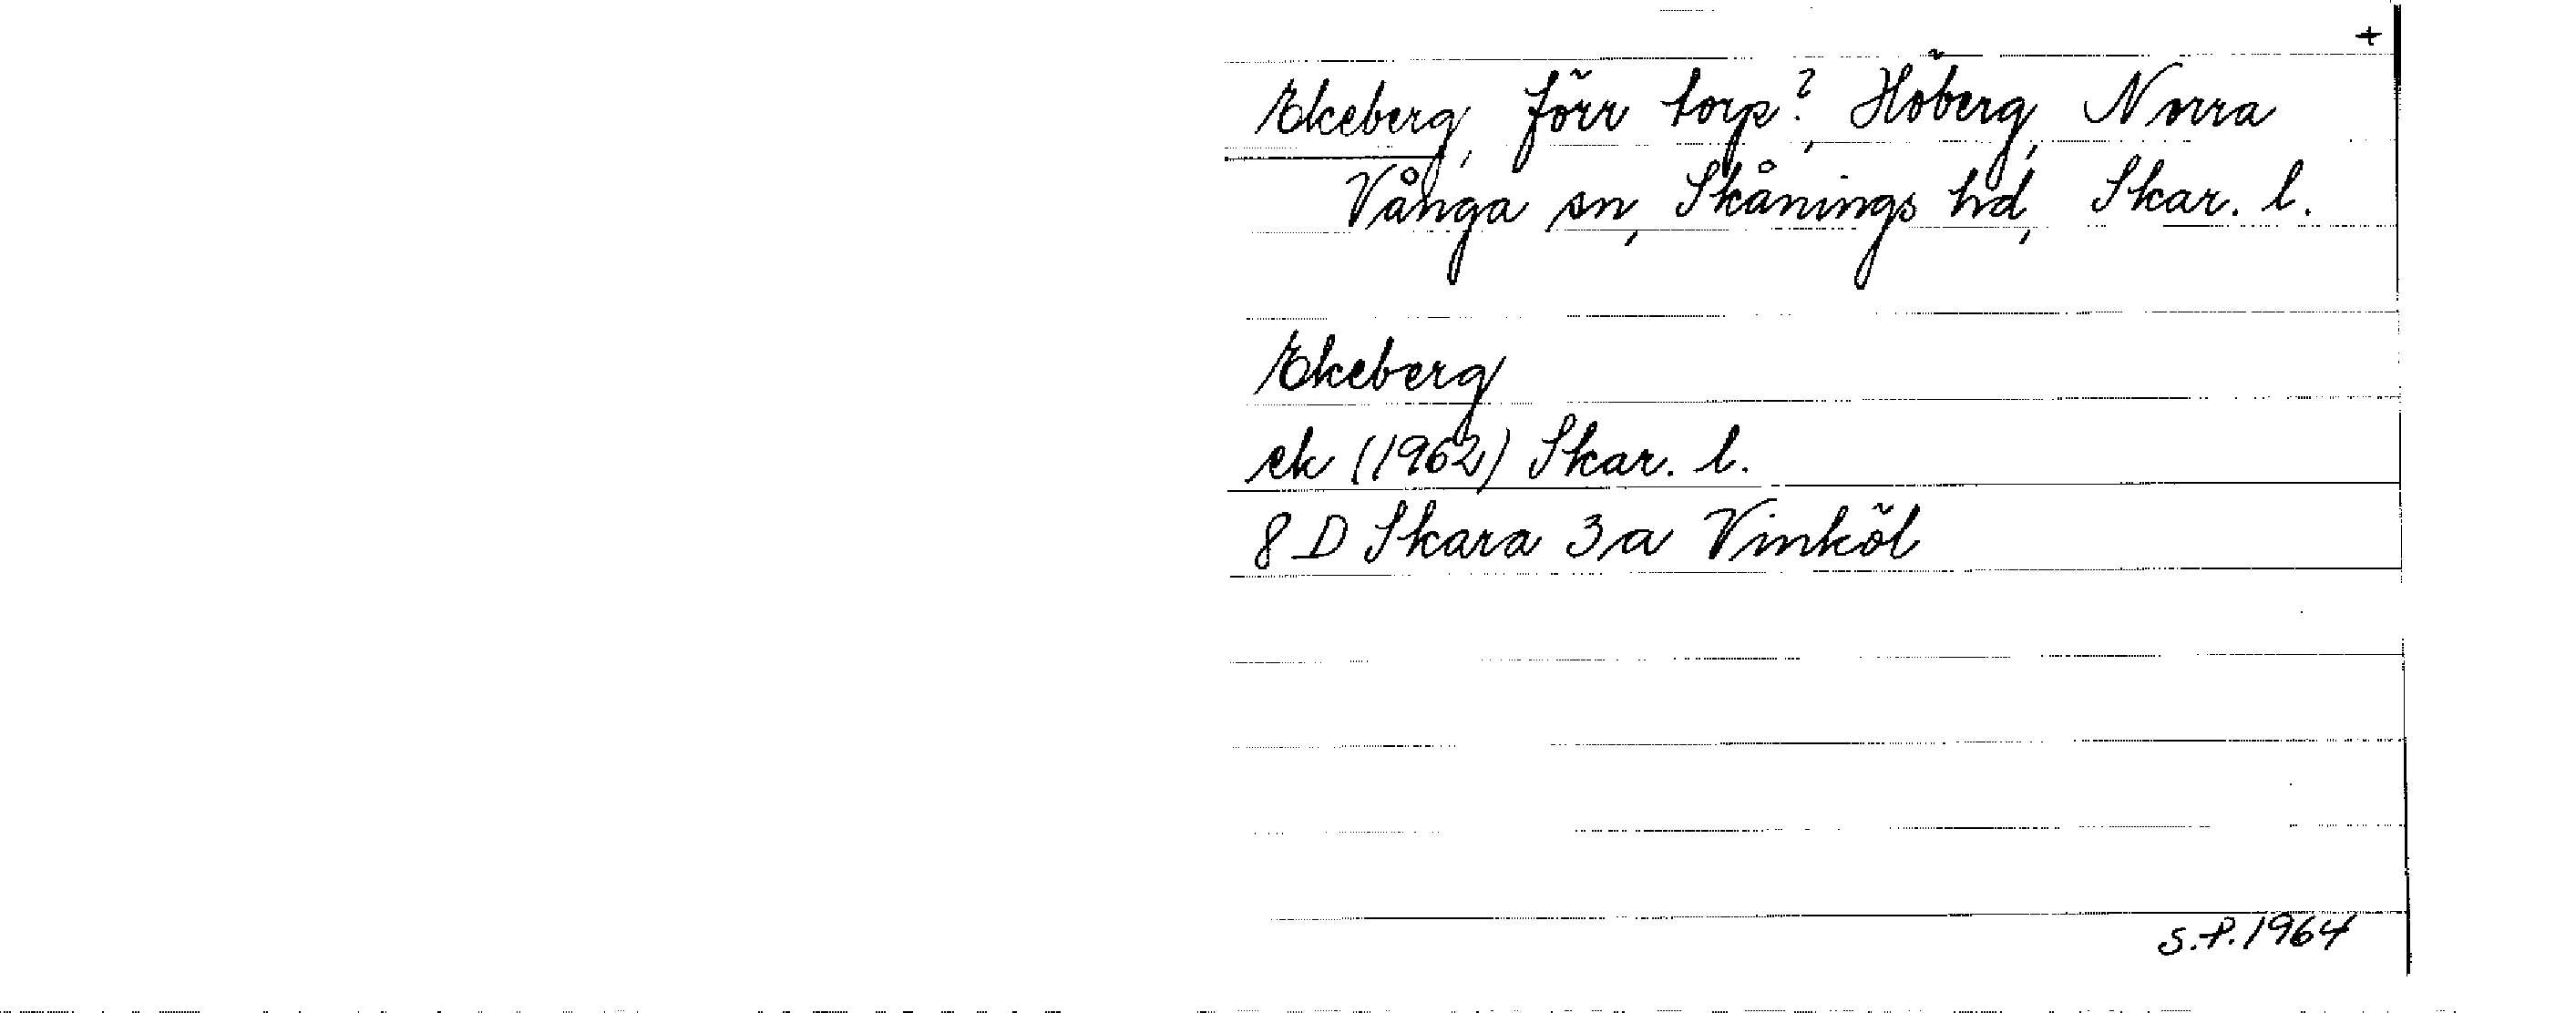 +
Ekeberg, förr torp?, Höberg, Norra
Vånga sn, Skånings hd, Skar. l.
Ekeberg
ek (1962) Skar. l.
8 D Skara 3 a Vinköl
S.P. 1964